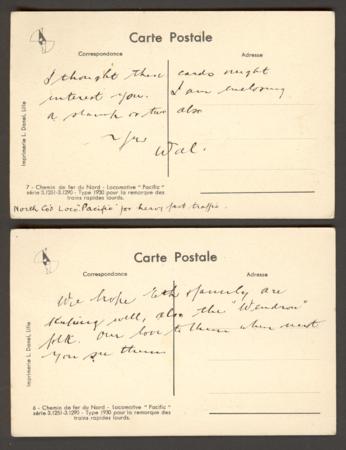 Carte Postale
Correspondance
Adresse
I thought these cards ought
interest you. I am enclosing
a stamp or two also
Yrs
Wal.
Imprimerie L. Danel, Lille
7 - Chemin de fer du Nord - Locomotive "Pacific"
série 3.1251-3.1290 - Type 1930 pour la remorque des
trains rapides lourds.
North Co's Loco "Pacific" for heavy fast traffic.
Carte Postale
Correspondance
Adresse
We hope Eth & family are
keeping well, also the "Wendron"
folk. Our love to them when next
you see them
Imprimerie L. Danel, Lille
6 - Chemin de fer du Nord - Locomotive "Pacific"
série 3.1251-3.1290 - Type 1930 pour la remorque des
trains rapides lourds.